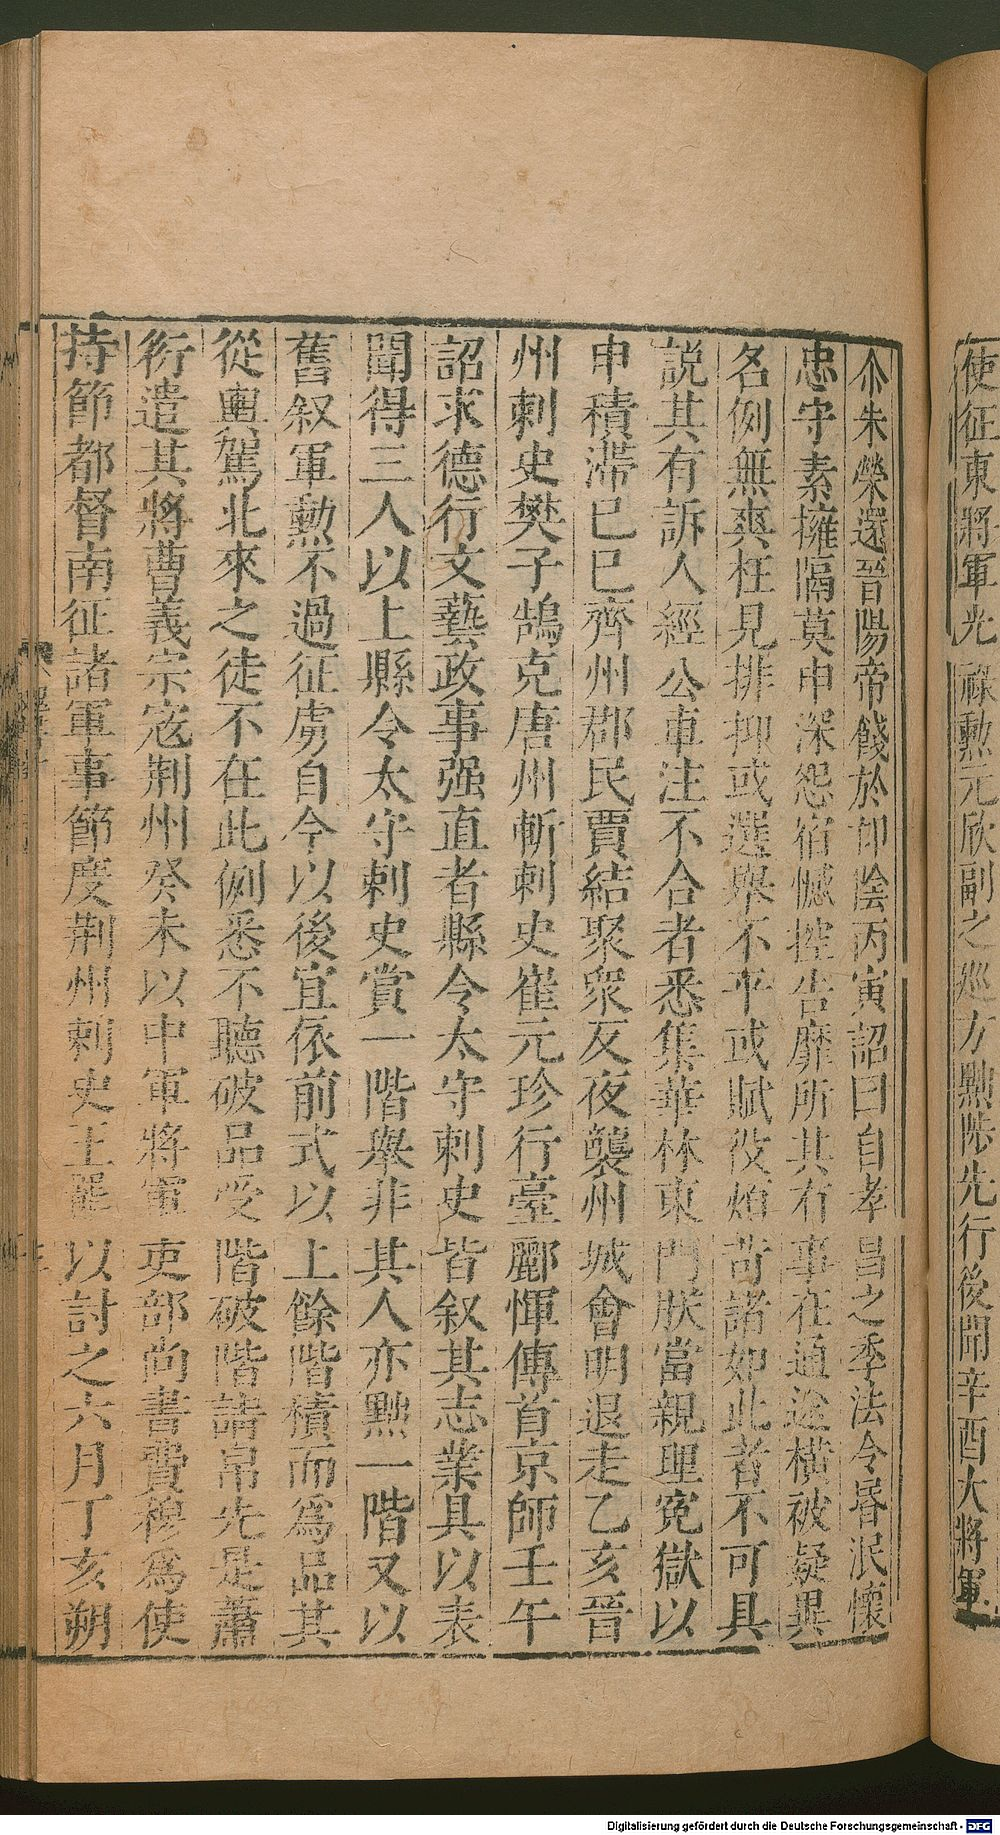 使征東將軍光祿勲元欣副之巡方黜陟先行後聞辛酉大將軍
尒朱榮還晉陽帝餞於邙陰丙寅詔曰自孝昌之季法令昏泯懷
忠守素擁隔莫申深怨宿憾控告靡所其有事在通途橫被疑異
名例無爽枉見排抑或選舉不平或賦役煩苛諸如此者不可具
説其有訴人經公車注不合者悉集華林東門朕當親理寃獄以
申積滯已巳齊州郡民賈結聚衆反夜襲州城會明退走乙亥晉
州刺史樊子鵠克唐州斬刺史崔元珍行臺酈惲傳首京師壬午
詔求德行文藝政事强直者縣令太守刺史皆叙其志業具以表
聞得三人以上縣令太守刺史賞一階舉非其人亦黜一階又以
舊叙軍勲不過征虜自今以後宜依前式以上餘階積而爲品其
從輿駕北來之徒不在此例悉不聽破品受階破階請帛先是蕭
衍遣其將曹義宗寇荆州癸未以中軍將軍吏部尚書費穆爲使
持節都督南征諸軍事節度荆州刺史王羆以討之六月丁亥朔
Digitalisierung gefördert durch die Deutsche Forschungsgemeinschaft - DFG